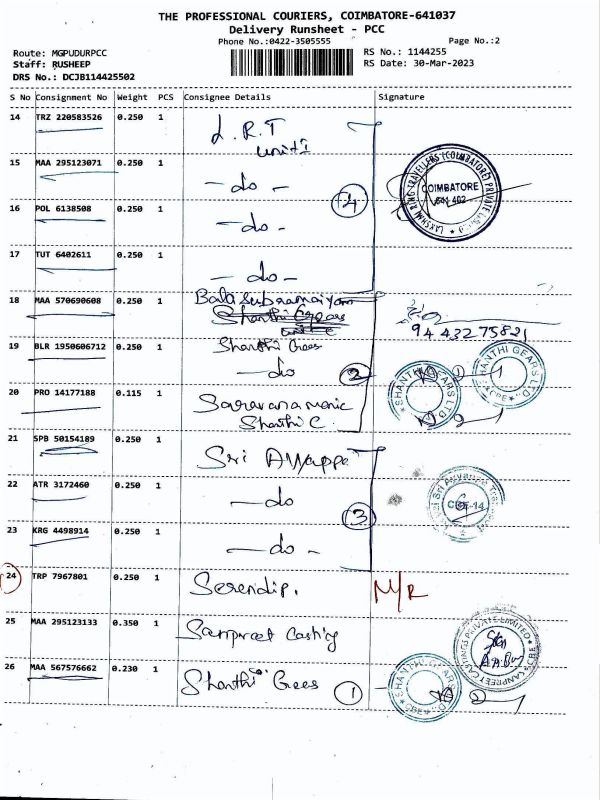 THE PROFESSIONAL COURIERS, COIMBATORE-641037
Delivery Runsheet - PCC
Phone No.:0422-3505555
Page No.:2
Route: MGPUDURPCC
RS No.: 1144255
Staff: RUSHEEP
RS Date: 30-Mar-2023
DRS No.: DCJB114425502
S No Consignment No Weight PCS Consignee Details Signature
14 TRZ 220583526 0.250 1 L.R.T
unit I
15 MAA 295123071 0.250 1 - do -
4
COIMBATORE
641 402
16 POL 6138508 0.250 1 - do -
17 TUT 6402611 0.250 1 - do -
18 MAA 570690608 0.250 1 Balasubramaiyam
Shanthi Gears
9443275821
19 BLR 1950606712 0.250 1 Shanthi Gees
- do
2
SHANTHI GEARS LTD.
CBE
SHANTHI GEARS LTD.
20 PRO 14177188 0.115 1 Saravana manic
Shanthi C.
21 SPB 50154189 0.250 1 Sri Ayyappa
22 ATR 3172460 0.250 1 - do
3
23 KRG 4498914 0.250 1 - do -
24 TRP 7967801 0.250 1 Serendip. N/R
25 MAA 295123133 0.350 1 Sanpreet Casting
SANPREET CASTINGS PRIVATE LIMITED
CBE
26 MAA 567576662 0.230 1 Shanthi Gees
1
SHANTHI GEARS LTD.
CBE